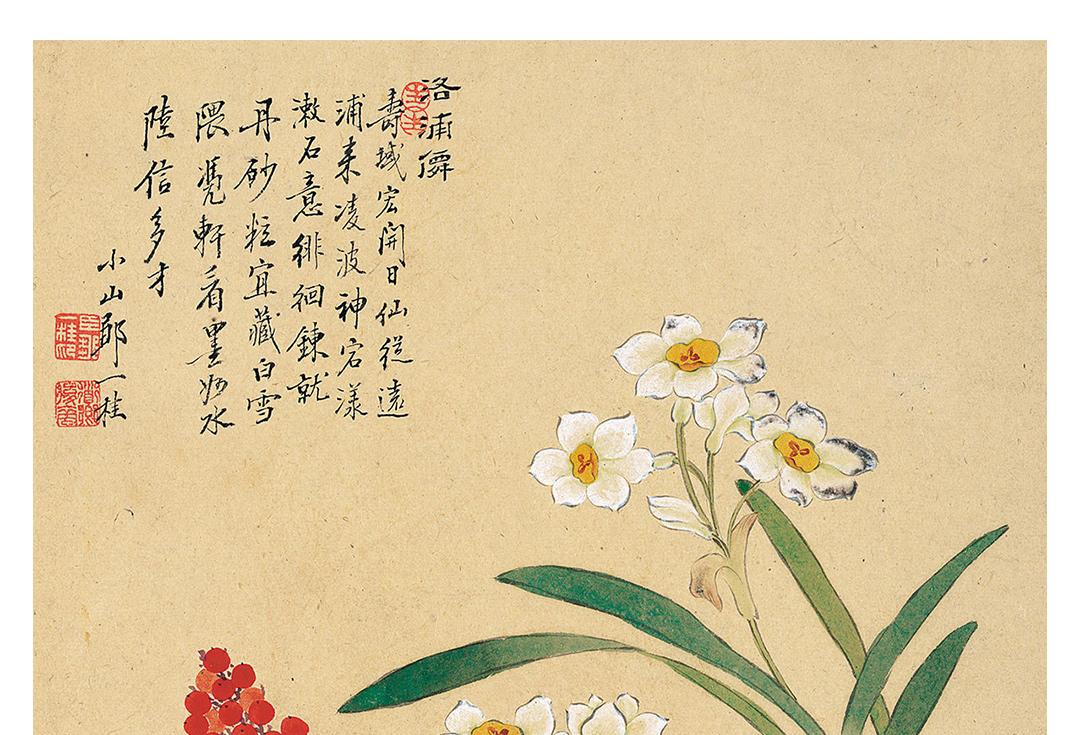 洛浦僊
壽域宏開日仙從遠
浦来凌波神宕漾
漱石意徘徊鍊就
丹砂粒宜藏白雪
隈憑軒看畫
水
陸信多才
小山鄒一桂